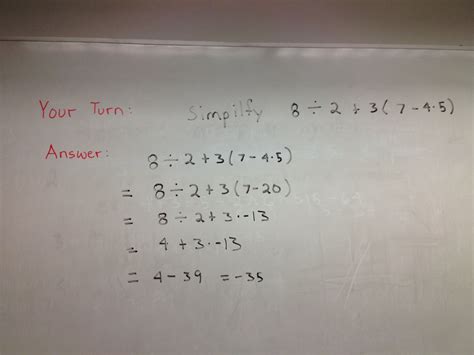 Your Turn: Simpilfy 8 ÷ 2 + 3(7-4·5)
Answer:
8 ÷ 2 + 3(7-4·5)
= 8 ÷ 2 + 3(7-20)
= 8 ÷ 2 + 3·-13
= 4 + 3·-13
= 4 - 39 = -35